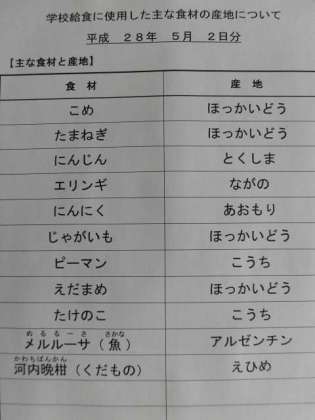 学校給食に使用した主な食材の産地について
平成 28年 5月 2日分
【主な食材と産地】
食 材 産 地
こめ ほっかいどう
たまねぎ ほっかいどう
にんじん とくしま
エリンギ ながの
にんにく あおもり
じゃがいも ほっかいどう
ピーマン こうち
えだまめ ほっかいどう
たけのこ こうち
めるるーさ さかな
メルルーサ(魚) アルゼンチン
かわちばんかん
河内晩柑(くだもの) えひめ